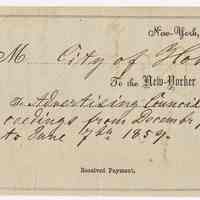 New-York,
M. City of Ho
To the New-Yorker
To Advertising Council
ceedings from December
to June 7th 1859.
Received Payment,